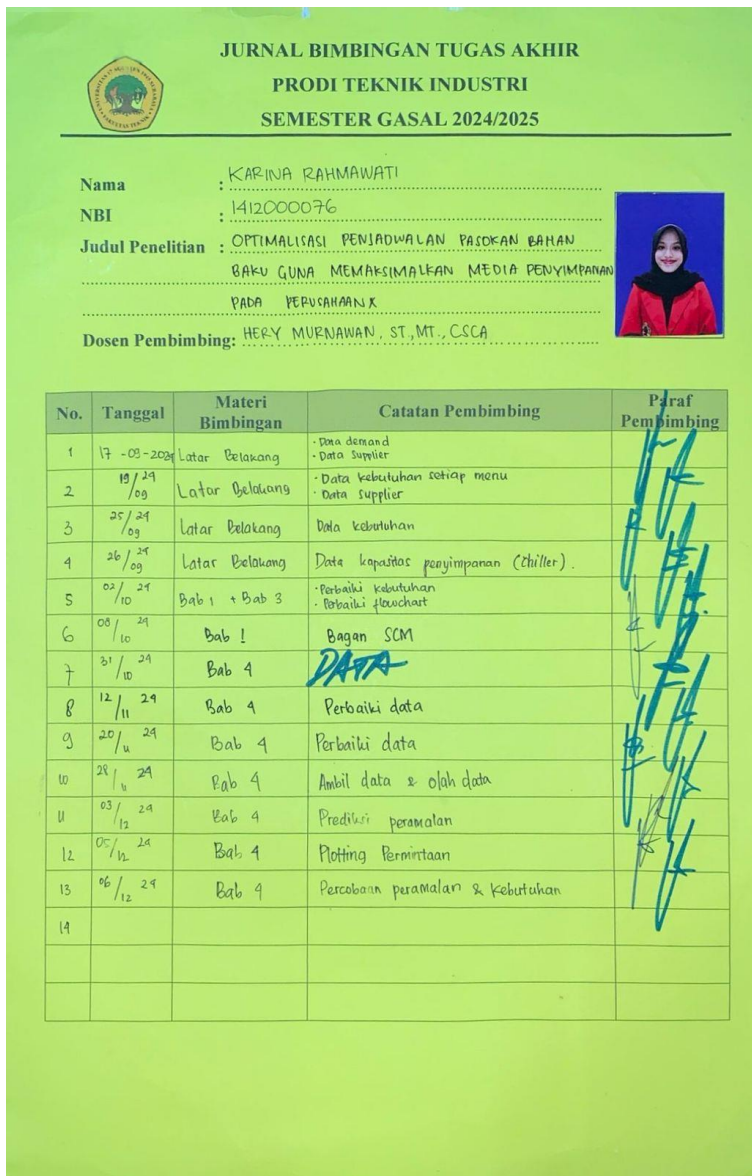 JURNAL BIMBINGAN TUGAS AKHIR
PRODI TEKNIK INDUSTRI
SEMESTER GASAL 2024/2025
Nama : KARINA RAHMAWATI
NBI : 1412000076
Judul Penelitian : OPTIMALISASI PENJADWALAN PASOKAN BAHAN
BAKU GUNA MEMAKSIMALKAN MEDIA PENYIMPANAN
PADA PERUSAHAAN X
Dosen Pembimbing: HERY MURNAWAN, ST.,MT., CSCA
No. Tanggal Materi Bimbingan Catatan Pembimbing Paraf Pembimbing
1 17-09-2024 Latar Belakang · Data demand
· Data Supplier
2 19/09 24 Latar Belakang · Data kebutuhan setiap menu
· Data Supplier
3 25/09 24 Latar Belakang Data kebutuhan
4 26/09 24 Latar Belakang Data kapasitas penyimpanan (Chiller).
5 02/10 24 Bab 1 + Bab 3 · Perbaiki kebutuhan
· Perbaiki flowchart
6 08/10 24 Bab 1 Bagan SCM
7 31/10 24 Bab 4 DATA
8 12/11 24 Bab 4 Perbaiki data
9 20/11 24 Bab 4 Perbaiki data
10 28/11 24 Bab 4 Ambil data & olah data
11 03/12 24 Bab 4 Prediksi peramalan
12 05/12 24 Bab 4 Plotting Permintaan
13 06/12 24 Bab 4 Percobaan peramalan & Kebutuhan
14